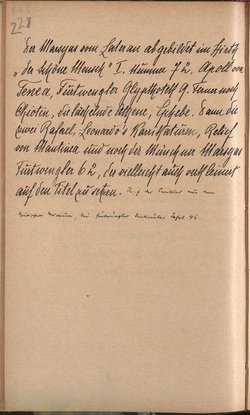 228
Der Marsyas vom Lateran abgebildet im Hirth
„der schöne Mensch" I. Nummer 72. Apoll von
Tenea, Furtwaengler Glyptothek 9. Dann noch
die lächelnde Athene, Ephebe. Dann die
zwei Rafael, Leonardo's Karikaturen, Relief
von Mantinea und noch der Münchner Marsyas
Furtwengler 62, der vielleicht auch verkleinert
auf den Titel zu setzen.
Museum, bei Furtwängler Denkmäler Tafel 46.